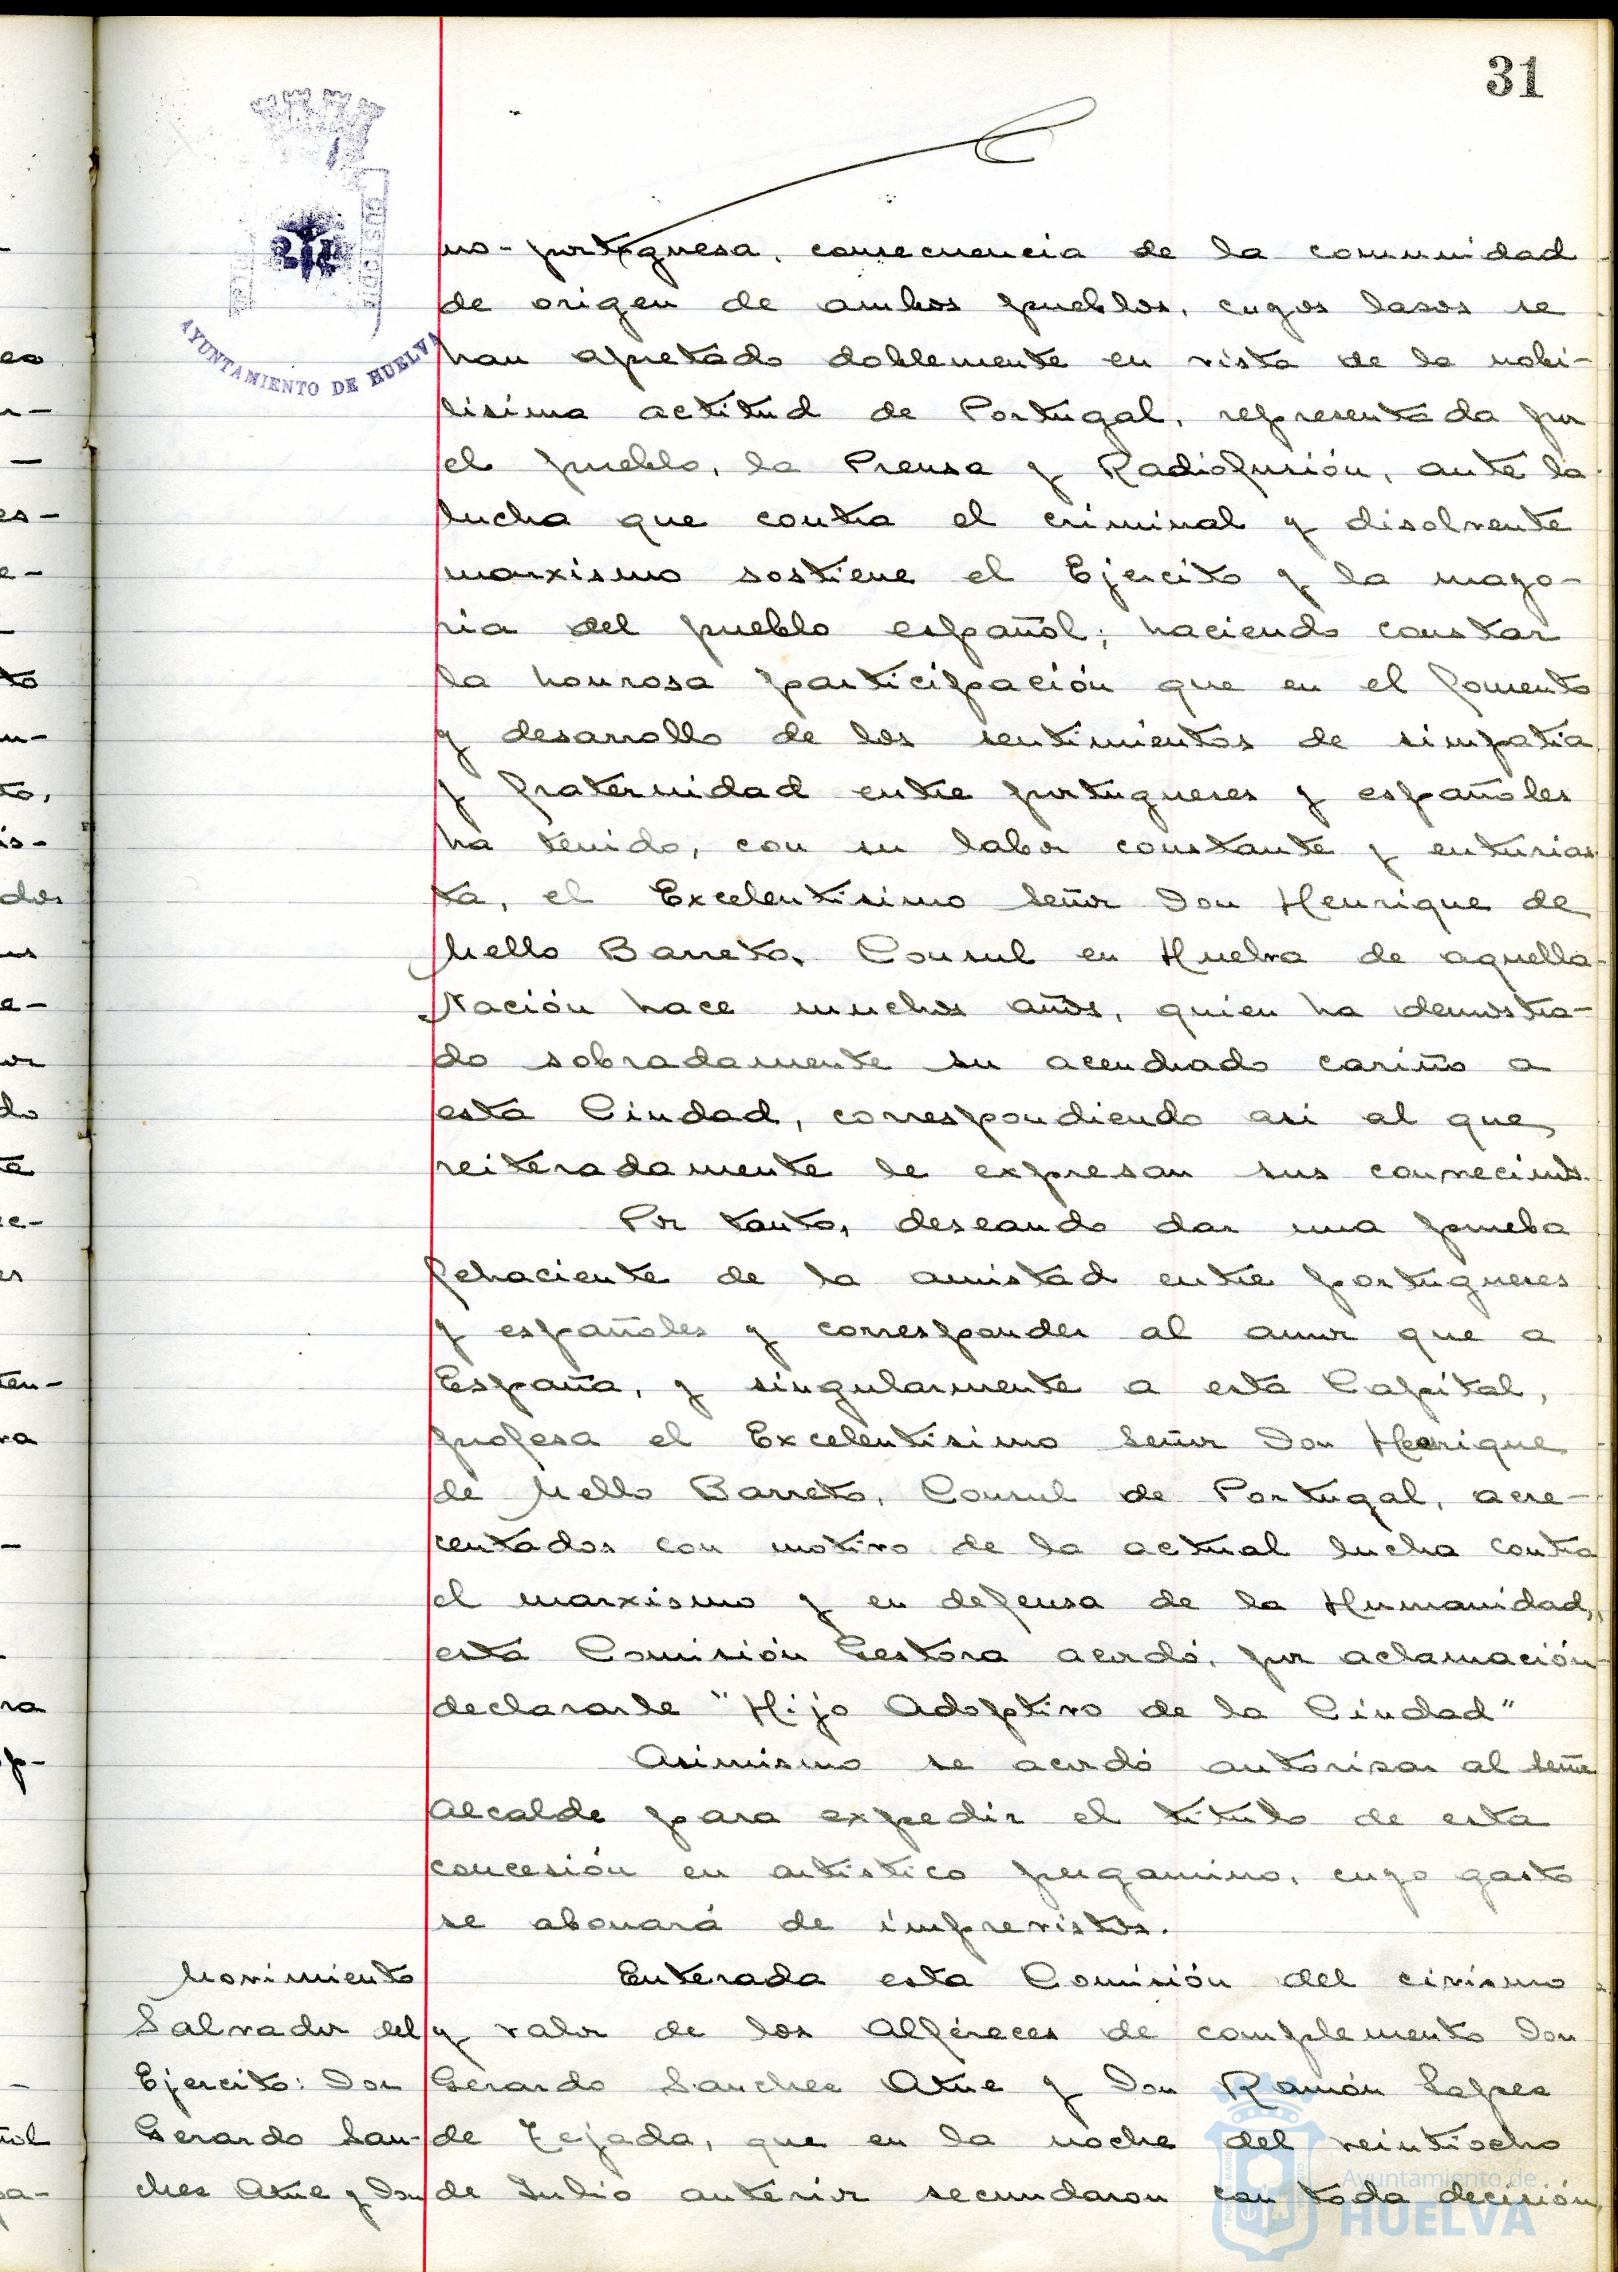 31
AYUNTAMIENTO DE HUELVA
no-portuguesa, consecuencia de la comunidad
de origen de ambos pueblos, cuyos lasos se
han apretado doblemente en vista de la nobi-
lisima actitud de Portugal, representada por
el pueblo, la Prensa y Radiofusión, ante la
lucha que contra el criminal y disolvente
marxismo sostiene el Ejercito y la mayo-
ria del pueblo español; haciendo constar
la honrosa participación que en el fomento
y desarrollo de los sentimientos de simpatia
y fraternidad entre portugueses y españoles
ha tenido, con su labor constante y enturias
ta, el Excelentisimo Señor Don Henrique de
Mello Barreto, Consul en Huelva de aquella
Nación hace muchos años, quien ha demostra-
do sobradamente su acendrado cariño a
esta Ciudad, correspondiendo asi al que
reiteradamente le expresan sus convecinos.
Por tanto, deseando dar una prueba
fehaciente de la amistad entre portugueses
y españoles y corresponder al amor que a
España, y singularmente a esta Capital,
profesa el Excelentisimo Señor Don Henrique
de Mello Barreto, Consul de Portugal, acre-
centados con motivo de la actual lucha contra
el marxismo y en defensa de la Humanidad,
esta Comisión Gestora acordó, por aclamación
declararle "Hijo Adoptivo de la Ciudad"
Asimismo se acordó autorisar al Señor
Alcalde para expedir el titulo de esta
concesión en artistico pergamino, cuyo gasto
se abonará de imprevistos.
Movimiento
Salvador del
Ejercito: Don
Gerardo San-
ches Atue y Don
Enterada esta Comisión del civismo
y valor de los Alféreces de complemento Don
Gerardo Sanches Atue y Don Ramón Lopes
de Tejada, que en la noche del veintiocho
de Julio anterior secundaron con toda decisión,
Ayuntamiento de
HUELVA